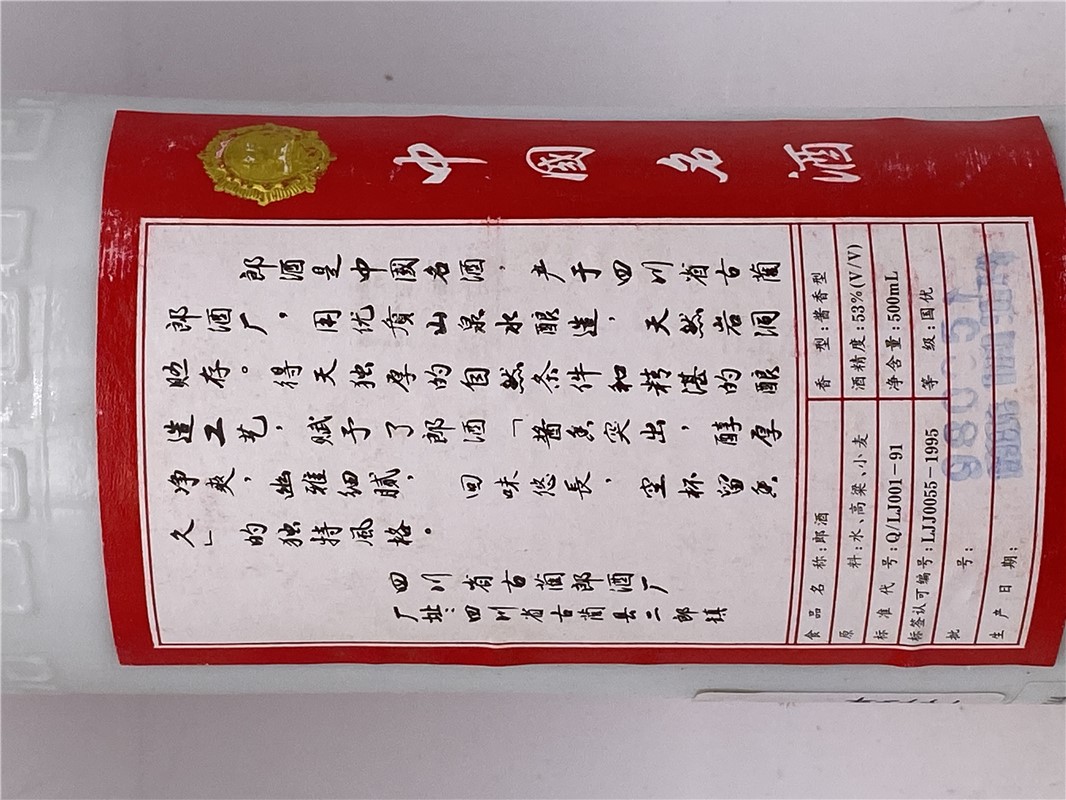 中國名酒
郎酒是中國名酒，产于四川省古蔺
郎酒厂，用优质山泉水酿造，天然岩洞
贮存。得天独厚的自然条件和精湛的酿
造工艺，赋予了郎酒「酱香突出，醇厚
净爽，幽雅细腻，回味悠長，空杯留香
久」的独特風格。
四川省古蔺郎酒厂
厂址：四川省古蔺县二郎镇
食品名称:郎酒 香型:酱香型
原料:水、高粱、小麦 酒精度:53%(V/V)
标准代号:Q/LJ001-91 净含量:500mL
标签认可编号:LJJ0055-1995 等级:国优
批号:
生产日期: